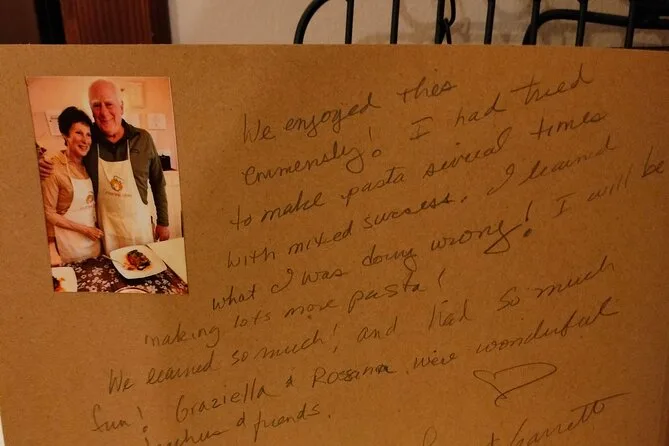 We enjoyed this
emmensly! I had tried
to make pasta several times
with mixed success. I learned
what I was doing wrong! I will be
making lots more pasta!
We learned so much! and had so much
fun! Graziella & Rossana were wonderful
teachers & friends.
Garrett